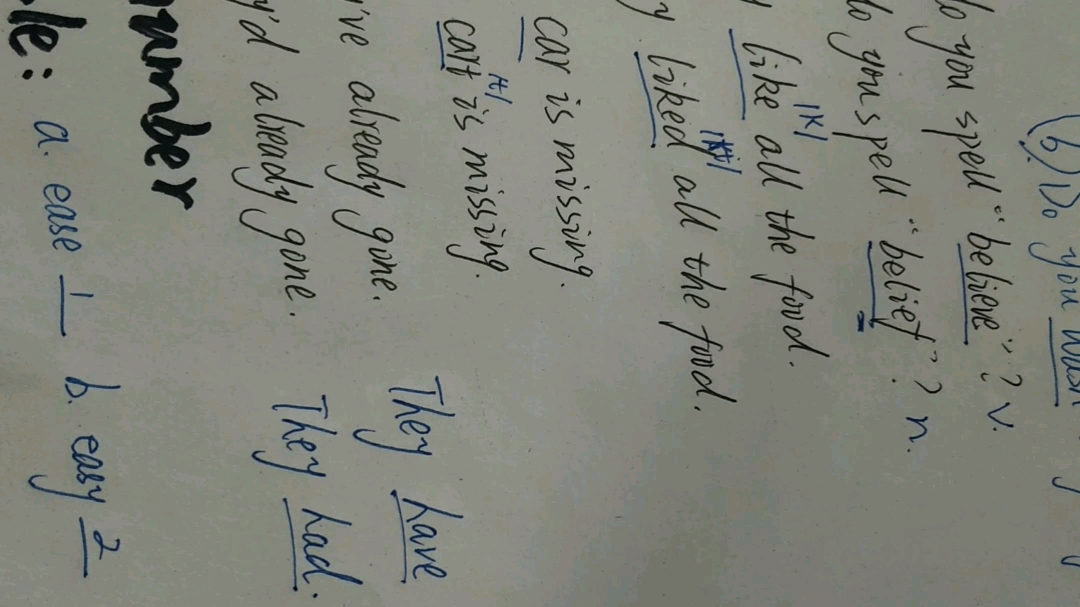 (b.) Do you wash
you spell "believe"? v.
do you spell "belief"? n.
/k/
like all the food.
y liked all the food.
car is missing.
/t/
cart is missing.
've already gone. They have
y'd already gone. They had.
number
le: a. ease 1 b. easy 2